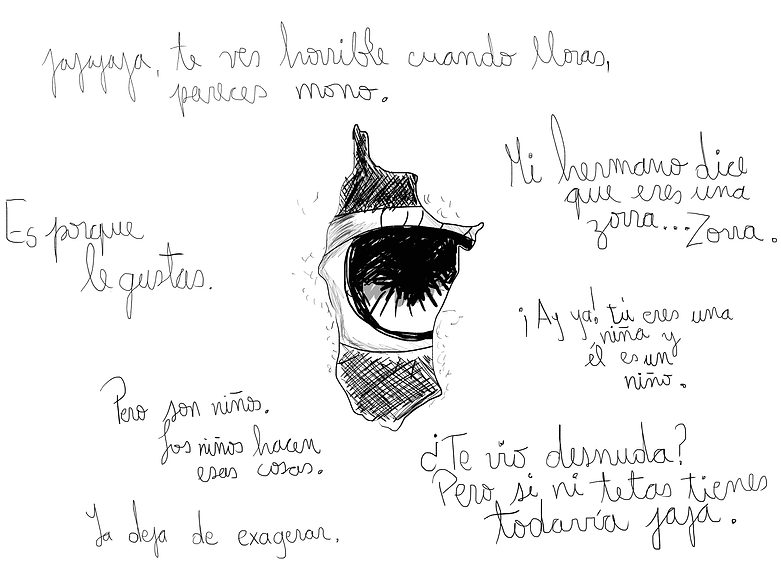 jajajaja, te ves horrible cuando lloras,
pareces mono.
Mi hermano dice
que eres una
zorra... Zorra.
Es porque
le gustas.
¡Ay ya! tú eres una
niña y
él es un
niño.
Pero son niños.
Los niños hacen
esas cosas.
¿Te vio desnuda?
Pero si ni tetas tienes
todavía jaja.
Ya deja de exagerar.